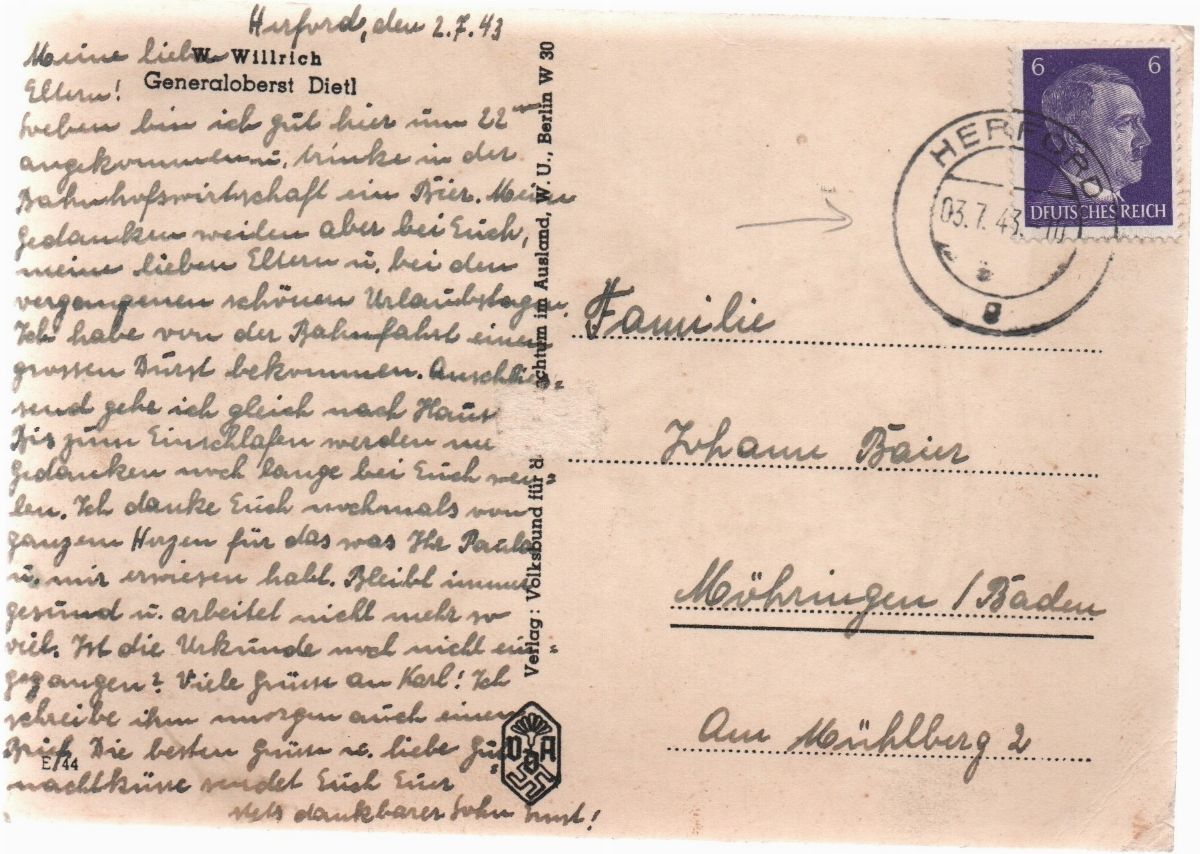 Herford, den 2.7.43
W. Willrich
Generaloberst Dietl
Meine lieben
Eltern!
Soeben bin ich gut hier um 22
angekommen u. trinke in der
Bahnhofswirtschaft ein Bier. Meine
Gedanken weilen aber bei Euch,
meine lieben Eltern u. bei den
vergangenen schönen Urlaubstagen.
Ich habe von der Bahnfahrt einen
grossen Durst bekommen. Anschlies=
send gehe ich gleich nach Haus
Bis zum Einschlafen werden
Gedanken noch lange bei Euch wei=
len. Ich danke Euch nochmals von
ganzem Herzen für das was Ihr Paula
u. mir erwiesen habt. Bleibt immer
gesund u. arbeitet nicht mehr so
viel. Ist die Urkunde noch nicht ein=
gegangen? Viele Grüsse an Karl! Ich
schreibe ihm morgen auch einen
Brief. Die besten Grüsse u. liebe Gut=
nachtküsse sendet Euch Euer
stets dankbarer Sohn Ernst!
E/44
Verlag: Volksbund für d achtum im Ausland, W. U., Berlin W 30
VDA
6 6
DEUTSCHES REICH
HERFORD
03.7.43. 10
g
Familie
Johann Baier
Möhringen / Baden
Am Mühlberg 2